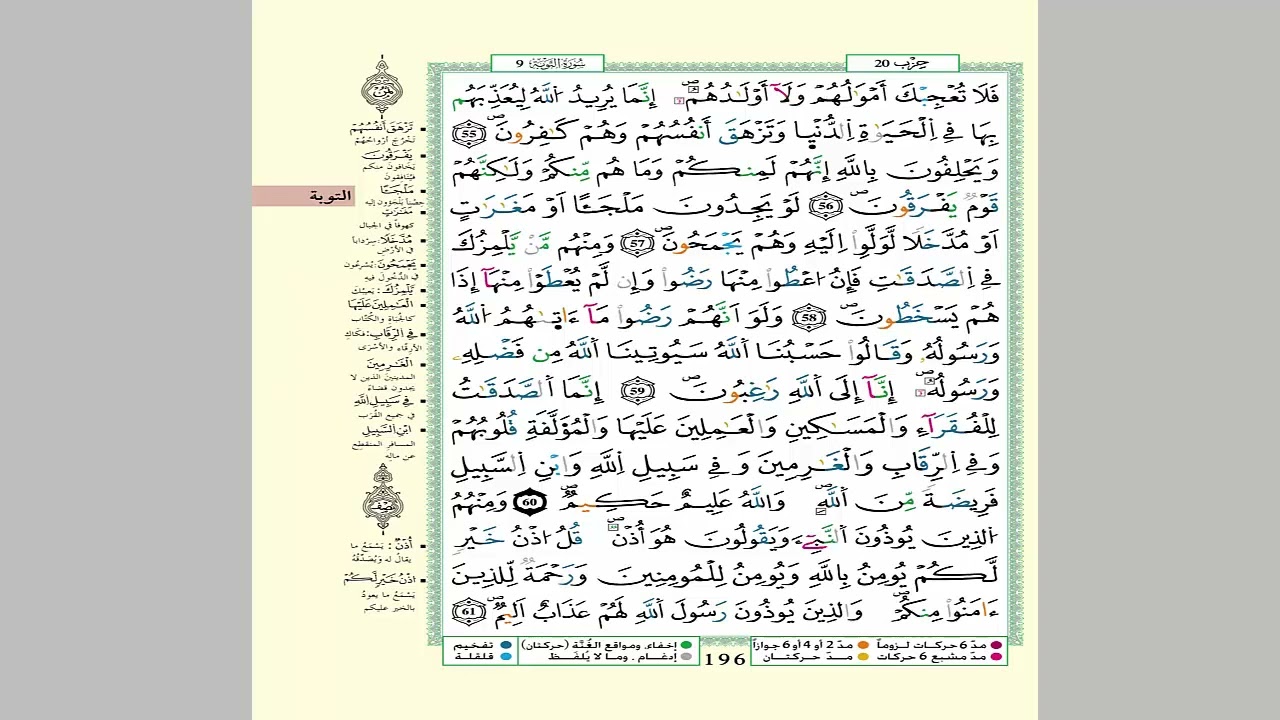 حِزْب 20
سُورَةُ التَّوْبَةِ 9
فَلَا تُعْجِبْكَ أَمْوَٰلُهُمْ وَلَآ أَوْلَٰدُهُمْ إِنَّمَا يُرِيدُ اُ۬للَّهُ لِيُعَذِّبَهُم
بِهَا فِے اِ۬لْحَيَوٰةِ اِ۬لدُّنْي۪ا وَتَزْهَقَ أَنفُسُهُمْ وَهُمْ كَٰفِرُونَ 55
وَيَحْلِفُونَ بِاللَّهِ إِنَّهُمْ لَمِنكُمْ وَمَا هُم مِّنكُمْ وَلَٰكِنَّهُمْ
قَوْمٌ يَفْرَقُونَ 56 لَوْ يَجِدُونَ مَلْجَـًٔا اَوْ مَغَٰرَٰتٍ
اَوْ مُدَّخَلًا لَّوَلَّوِاْ اِلَيْهِ وَهُمْ يَجْمَحُونَ 57 وَمِنْهُم مَّنْ يَّلْمِزُكَ
فِے اِ۬لصَّدَقَٰتِ فَإِنُ ا۟عْطُواْ مِنْهَا رَضُواْ وَإِن لَّمْ يُعْطَوْاْ مِنْهَآ إِذَا
هُمْ يَسْخَطُونَ 58 وَلَوَ اَنَّهُمْ رَضُواْ مَآ ءَات۪يٰهُمُ اُ۬للَّهُ
وَرَسُولُهُۥ وَقَالُواْ حَسْبُنَا اَ۬للَّهُ سَيُوتِينَا اَ۬للَّهُ مِن فَضْلِهِۦ
وَرَسُولُهُۥٓ إِنَّآ إِلَى اَ۬للَّهِ رَٰغِبُونَ 59 إِنَّمَا اَ۬لصَّدَقَٰتُ
لِلْفُقَرَآءِ وَالْمَسَٰكِينِ وَالْعَٰمِلِينَ عَلَيْهَا وَالْمُؤَلَّفَةِ قُلُوبُهُمْ
وَفِے اِ۬لرِّقَابِ وَالْغَٰرِمِينَ وَفِے سَبِيلِ اِ۬للَّهِ وَابْنِ اِ۬لسَّبِيلِ
فَرِيضَةً مِّنَ اَ۬للَّهِ وَاللَّهُ عَلِيمٌ حَكِيمٌ 60 وَمِنْهُمُ
اُ۬لذِينَ يُوذُونَ اَ۬لنَّبِےٓءَ وَيَقُولُونَ هُوَ أُذْنٌ قُلُ ا۟ذْنُ خَيْرٍ
لَّكُمْ يُومِنُ بِاللَّهِ وَيُومِنُ لِلْمُومِنِينَ وَرَحْمَةٌ لِّلذِينَ
ءَامَنُواْ مِنكُمْ وَالذِينَ يُوذُونَ رَسُولَ اَ۬للَّهِ لَهُمْ عَذَابٌ اَلِيمٌ 61
ثمن
تَزْهَقَ أَنفُسُهُمْ
تَخْرُجَ أرْوَاحُهُمْ
يَفْرَقُونَ
يَخَافُونَ منكم
فَيُنَافِقون
مَلْجَـًٔا
حِصْناً يَلْجَؤُون إليه
مَغَٰرَٰتٍ
كهوفاً في الجبال
مُدَّخَلًا: سِرْدَاباً
في الأرْض
يَجْمَحُونَ: يُسْرِعُون
في الدُّخُول فيه
يَلْمِزُكَ: يَعِيبُكَ
الْعَٰمِلِينَ عَلَيْهَا
كالجُبَاةِ والكُتَّاب
فِے اِ۬لرِّقَابِ: فَكَاكِ
الأرِقَّاءِ والأسْرَى
الْغَٰرِمِينَ
المدينين الذين لا
يجدون قضاءً
فِے سَبِيلِ اِ۬للَّهِ
في جميع القُرَب
ابْنِ اِ۬لسَّبِيلِ
المسافر المنقطع
عن ماله
نصف
أُذْنٌ: يَسْمَعُ ما
يقالُ له ويُصَدِّقُهُ
اُذْنُ خَيْرٍ لَّكُمْ
يَسْمَعُ ما يعودُ
بالخير عليكم
التوبة
مدّ 6 حركات لـزوماً
مدّ 2 أو 4 أو 6 جوازاً
إخفاء، ومواقع الغُنَّة (حركتان)
تفخيم
مدّ مشبع 6 حركات
مدّ حركتـان
إدغـام، ومـا لا يُلفَـظ
قلقلـة
196